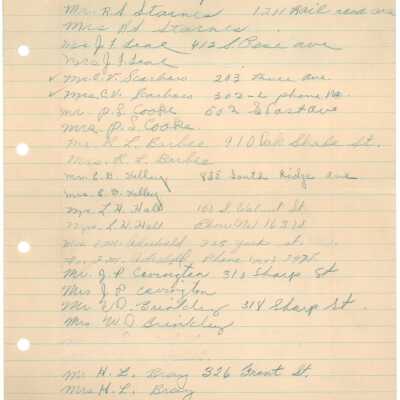 Mr. R S Starnes 1211 Rail road ave
Mrs R S Starnes
Mr J F Leae 412 S Rose ave
Mrs J F Leae
✓ Mr. C. V. Scarboro 203 ave.
✓ Mrs. C. V. Scarboro 302-L phone No.
Mr. P. S. Cooke 602 East ave
Mrs P. S. Cooke.
Mr. R L. Barbee 910 Oak Shade St.
Mrs. R. L. Barbee
Mr. E. D. Kelley 835 South Ridge ave
Mrs. E. D. Kelley
Mr. L. H. Hall 103 S Walnut St.
Mrs. L. H. Hall Phone No 1637J
Mr. I. M. Aderhold 225 York st.
Mrs. I. M. Aderholt Phone
Mr. J. P. Covington 313 Sharp St
Mrs J P Covington
Mr W. D. Brinkley 314 Sharp St.
Mrs W. D Brinkley
Mr H. L. Bray 326 Front St.
Mrs H. L. Bray